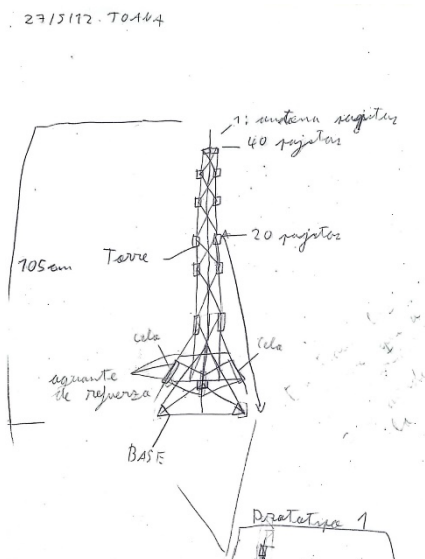 27/5/12. TOANA
1: antena pajitas
40 pajitas
20 pajitas
Torre
105 cm
cela
cela
aguante
de refuerza
BASE
Prototipo 1